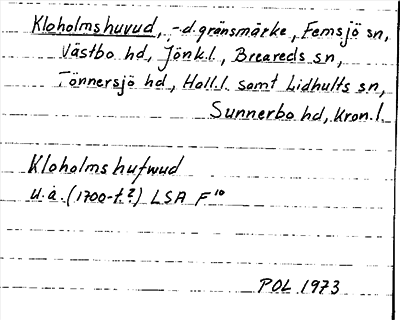 Kloholmshuvud, -d. gränsmärke, Femsjö sn,
Västbo hd, Jönk.l., Breareds sn,
Tönnersjö hd, Hall.l. samt Lidhults sn,
Sunnerbo hd, Kron.l.
Kloholms hufwud
u.å. (1700-t.?) LSA F 10
POL 1973